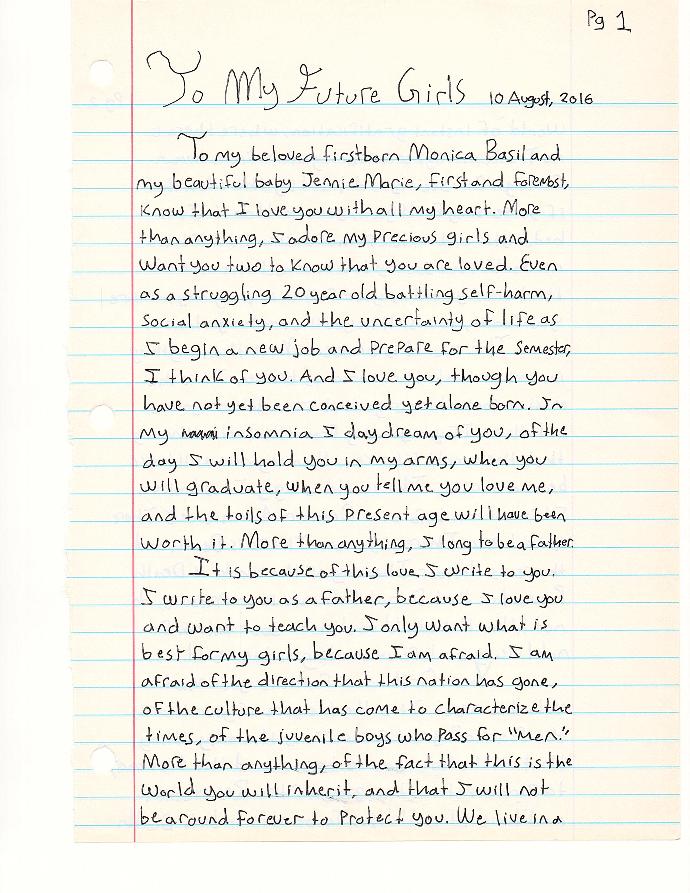 Pg 1
To My Future Girls 10 August, 2016
To my beloved firstborn Monica Basil and
my beautiful baby Jennie Marie, first and foremost,
know that I love you with all my heart. More
than anything, I adore my precious girls and
want you two to know that you are loved. Even
as a struggling 20 year old battling self-harm,
social anxiety, and the uncertainty of life as
I begin a new job and prepare for the semester,
I think of you. And I love you, though you
have not yet been conceived yet alone born. In
my insomnia I daydream of you, of the
day I will hold you in my arms, when you
will graduate, when you tell me you love me,
and the toils of this present age will have been
worth it. More than anything, I long to be a father.
It is because of this love I write to you.
I write to you as a father, because I love you
and want to teach you. I only want what is
best for my girls, because I am afraid. I am
afraid of the direction that this nation has gone,
of the culture that has come to characterize the
times, of the juvenile boys who pass for "men."
More than anything, of the fact that this is the
world you will inherit, and that I will not
be around forever to protect you. We live in a